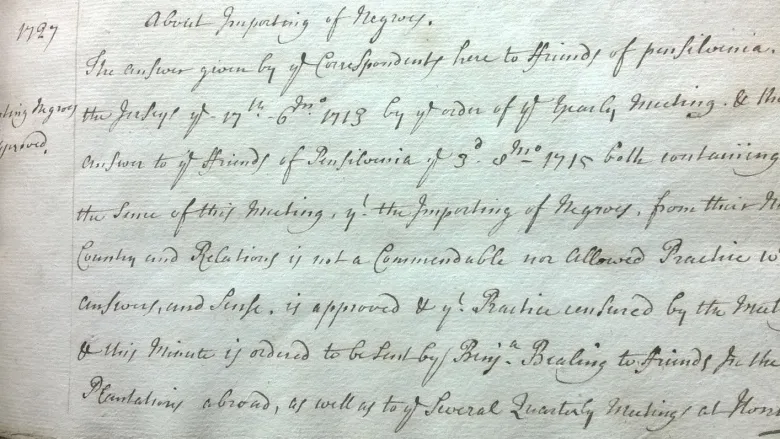 1727
About Importing of Negroes.
The answer given by yᵉ Correspondents here to ffriends of pensilvenia.
the Jerseys yᵉ 17ᵗʰ 6ᵐᵒ 1713 by yᵉ order of yᵉ Yearly Meeting. & th
ting Negroes
answer to yᵉ ffriends of Pensilvenia yᵉ 3ᵈ 8ᵐᵒ 1715 both containing
proved.
the Sense of this Meeting, yᵗ the Importing of Negroes, from their
Country and Relations is not a Commendable nor Allowed Practice
answers, and Sense. is approved & yᵗ Practice censured by the Meet
& this Minute is ordered to be Sent by Benjᵃ Bealing to ffriends In the
Plantations abroad, as well as to yᵉ Several Quarterly Meetings at Hom